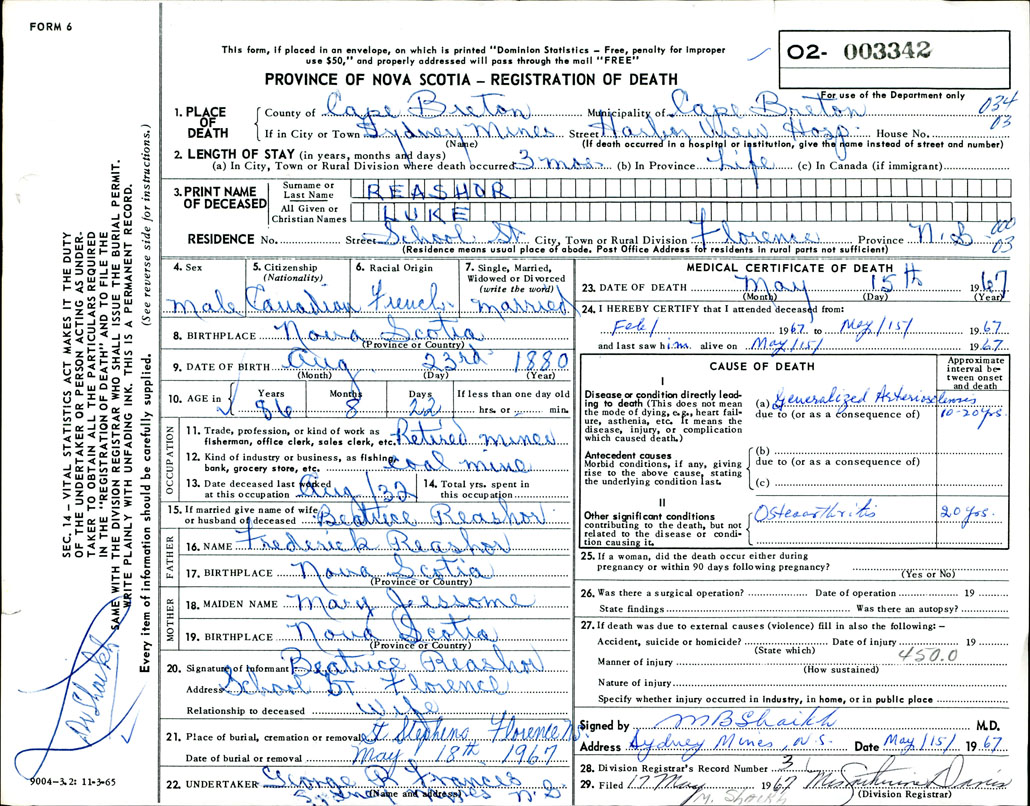 FORM 6
This form, if placed in an envelope, on which is printed "Dominion Statistics – Free, penalty for improper
use $50," and properly addressed will pass through the mail "FREE"
O2- 003342
PROVINCE OF NOVA SCOTIA – REGISTRATION OF DEATH
For use of the Department only
034
03
1. PLACE OF DEATH County of Cape Breton Municipality of Cape Breton
If in City or Town Sydney Mines Street Harbor View Hosp. House No.
(Name) (If death occurred in a hospital or institution, give the name instead of street and number)
2. LENGTH OF STAY (in years, months and days)
(a) In City, Town or Rural Division where death occurred 3 mos. (b) In Province Life (c) In Canada (if immigrant)
3. PRINT NAME OF DECEASED Surname or Last Name REASHOR
All Given or Christian Names LUKE
000
03
RESIDENCE No. Street School St City, Town or Rural Division Florence Province N.S
(Residence means usual place of abode. Post Office Address for residents in rural parts not sufficient)
4. Sex 5. Citizenship (Nationality) 6. Racial Origin 7. Single, Married, Widowed or Divorced (write the word)
male Canadian French married
8. BIRTHPLACE Nova Scotia
(Province or Country)
9. DATE OF BIRTH Aug 23rd 1880
(Month) (Day) (Year)
10. AGE in Years Months Days If less than one day old
86 8 22 hrs. or min.
OCCUPATION
11. Trade, profession, or kind of work as fisherman, office clerk, sales clerk, etc. Retired miner
12. Kind of industry or business, as fishing, bank, grocery store, etc. coal mine
13. Date deceased last worked at this occupation Aug/32 14. Total yrs. spent in this occupation
15. If married give name of wife or husband of deceased Beatrice Reashor
FATHER
16. NAME Frederick Reashor
17. BIRTHPLACE Nova Scotia
(Province or Country)
MOTHER
18. MAIDEN NAME Mary Jessome
19. BIRTHPLACE Nova Scotia
(Province or Country)
20. Signature of informant Beatrice Reashor
Address School St Florence
Relationship to deceased Wife
21. Place of burial, cremation or removal St Stephens Florence
Date of burial or removal May 18th 1967
22. UNDERTAKER George R Francis
(Name and address) N.S.
MEDICAL CERTIFICATE OF DEATH
23. DATE OF DEATH May 15th 1967
(Month) (Day) (Year)
24. I HEREBY CERTIFY that I attended deceased from:
Feb/ 1967 to May/15/ 1967
and last saw him alive on May/15/ 1967.
CAUSE OF DEATH
Approximate interval between onset and death
I
Disease or condition directly leading to death (This does not mean the mode of dying, e.g., heart failure, asthenia, etc. It means the disease, injury, or complication which caused death.)
(a) Generalized Arteriosclerosis 10-20 yrs.
due to (or as a consequence of)
Antecedent causes
Morbid conditions, if any, giving rise to the above cause, stating the underlying condition last.
(b)
due to (or as a consequence of)
(c)
II
Other significant conditions contributing to the death, but not related to the disease or condition causing it.
Osteoarthritis 20 yrs.
25. If a woman, did the death occur either during
pregnancy or within 90 days following pregnancy?
(Yes or No)
26. Was there a surgical operation? Date of operation 19
State findings Was there an autopsy?
27. If death was due to external causes (violence) fill in also the following: –
Accident, suicide or homicide? Date of injury 19
(State which) 450.0
Manner of injury
(How sustained)
Nature of injury
Specify whether injury occurred in industry, in home, or in public place
Signed by MB Shaikh M.D.
Address Sydney Mines, N.S. Date May/15/ 1967
28. Division Registrar's Record Number 3
29. Filed 17 May 1967 Davis
M. Shaikh (Division Registrar)
SEC. 14 – VITAL STATISTICS ACT MAKES IT THE DUTY
OF THE UNDERTAKER OR PERSON ACTING AS UNDER-
TAKER TO OBTAIN ALL THE PARTICULARS REQUIRED
IN THE "REGISTRATION OF DEATH" AND TO FILE THE
SAME WITH THE DIVISION REGISTRAR WHO SHALL ISSUE THE BURIAL PERMIT.
WRITE PLAINLY WITH UNFADING INK. THIS IS A PERMANENT RECORD.
Every item of information should be carefully supplied. (See reverse side for instructions.)
Dr Shaikh
9004-3.2: 11-3-65